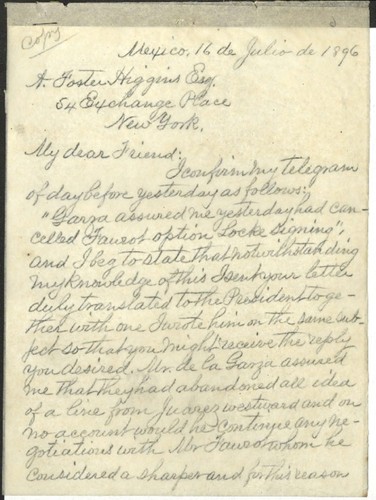 Copy
Mexico, 16 de Julio de 1896
A. Foster Higgins Esq.
54 Exchange Place
New York.
My dear Friend:
I confirm my telegram
of day before yesterday as follows:
"Garza assured me yesterday had can-
celled Fawsot option Locke signing",
and I beg to state that notwithstanding
my knowledge of this I sent your letter
duly translated to the President toge-
ther with one I wrote him on the same sub-
ject so that you might receive the reply
you desired. Mr. de la Garza assured
me that they had abandoned all idea
of a line from Juarez westward and on
no account would he continue any ne-
gotiations with Mr Fawsot whom he
considered a sharper and for this reason